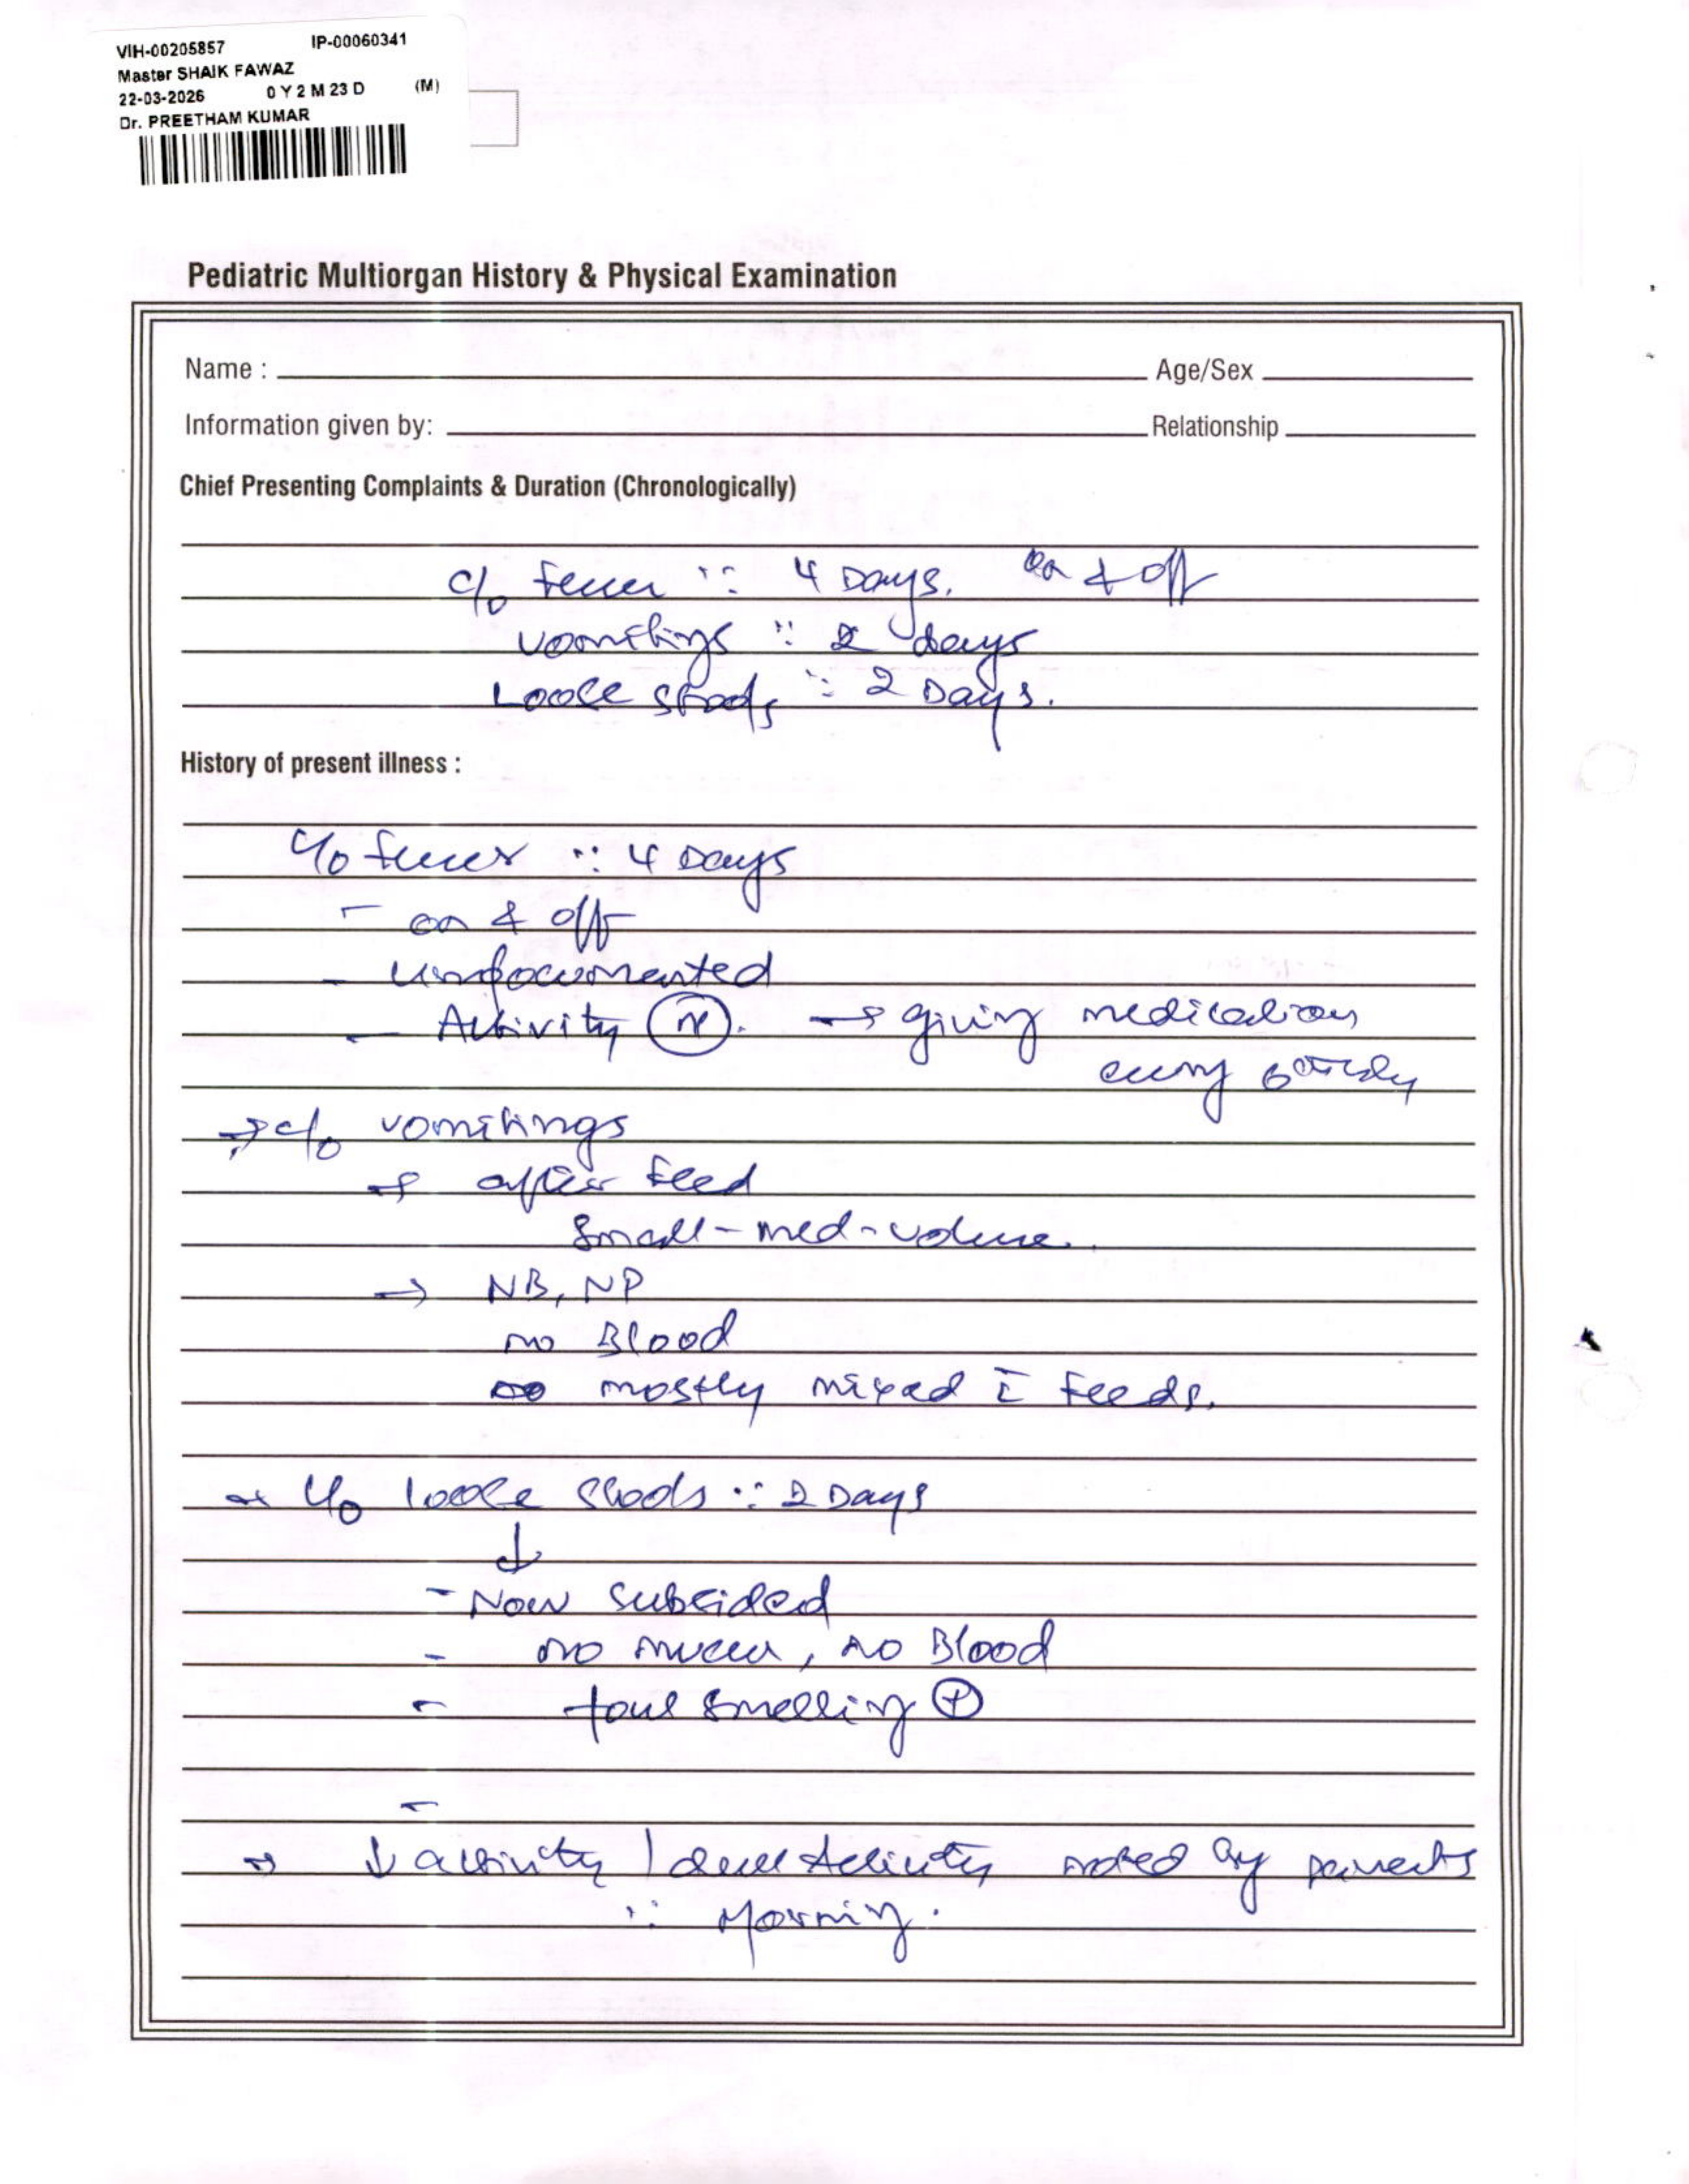 VIH-00205857 IP-00060341
Master SHAIK FAWAZ
22-03-2026 0 Y 2 M 23 D (M)
Dr. PREETHAM KUMAR
Pediatric Multiorgan History & Physical Examination
Name : Age/Sex
Information given by: Relationship
Chief Presenting Complaints & Duration (Chronologically)
c/o Fever ∵ 4 Days. on & off
vomitings ∵ 2 days
Loose stools ∵ 2 Days.
History of present illness :
c/o fever ∵ 4 Days
- on & off
- undocumented
- Activity (N). → giving medication
every
→ c/o vomitings
→ after feed
Small-med-volume.
→ NB, NP
no Blood
mostly mixed c̄ feeds.
→ c/o loose stools ∵ 2 Days
↓
- Now subsided
- no mucus, no Blood
- foul smelling ⊕
-
→ ↓ activity / dull activity noted by parents
∵ Morning.